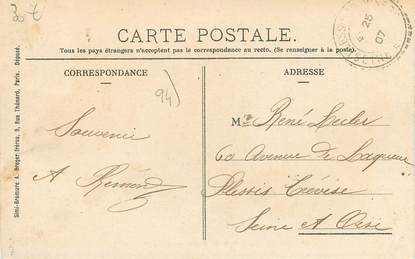 2 €
CARTE POSTALE.
Tous les pays étrangers n'acceptent pas la correspondance au recto. (Se renseigner à la poste).
CORRESPONDANCE
ADRESSE
94)
25
07
Simi-Bromure A. Breger Frères, 9, Rue Thénard, Paris. Déposé.
Souvenir
A Rémond
M René
60 Avenue de
Plessis Trévise
Seine et Oise